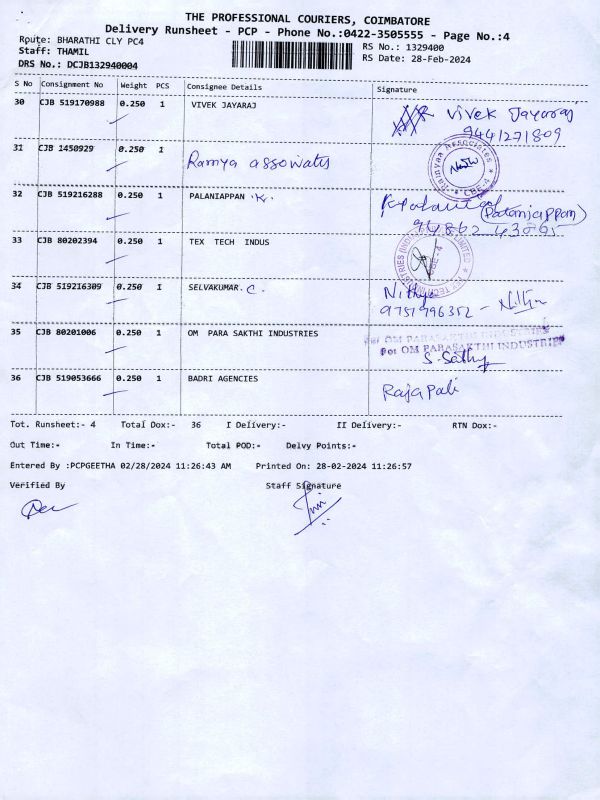 THE PROFESSIONAL COURIERS, COIMBATORE
Delivery Runsheet - PCP - Phone No.:0422-3505555 - Page No.:4
Route: BHARATHI CLY PC4
Staff: THAMIL
DRS No.: DCJB132940004
RS No.: 1329400
RS Date: 28-Feb-2024
S No Consignment No Weight PCS Consignee Details Signature
30 CJB 519170988 0.250 1 VIVEK JAYARAJ Vivek Jayaraj
9441271809
31 CJB 1450929 0.250 1 Ramya associates
Ramyaa Associates CBE-4
32 CJB 519216288 0.250 1 PALANIAPPAN .K.
(Palaniappan)
33 CJB 80202394 0.250 1 TEX TECH INDUS
34 CJB 519216309 0.250 1 SELVAKUMAR. C. Nithya
9751796352 - Nithya
35 CJB 80201006 0.250 1 OM PARA SAKTHI INDUSTRIES For OM PARASAKTHI INDUSTRIES
For OM PARASAKTHI INDUSTRIES
S. Sathy
36 CJB 519053666 0.250 1 BADRI AGENCIES Raja Pali
Tot. Runsheet:- 4 Total Dox:- 36 I Delivery:- II Delivery:- RTN Dox:-
Out Time:- In Time:- Total POD:- Delvy Points:-
Entered By :PCPGEETHA 02/28/2024 11:26:43 AM Printed On: 28-02-2024 11:26:57
Verified By Staff Signature